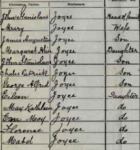 John Stanislaus Joyce Head of Fam
Mary Joyce Wife
James Augustine Joyce Son
Margaret Joyce Daughter
John Stanislaus Joyce Son
Charles Patrick Joyce Son
George Alfred Joyce Son
Eileen Joyce Daughter
Mary Kathleen Joyce do
Eva Mary Joyce do
Florence Joyce do
Mabel Joyce do